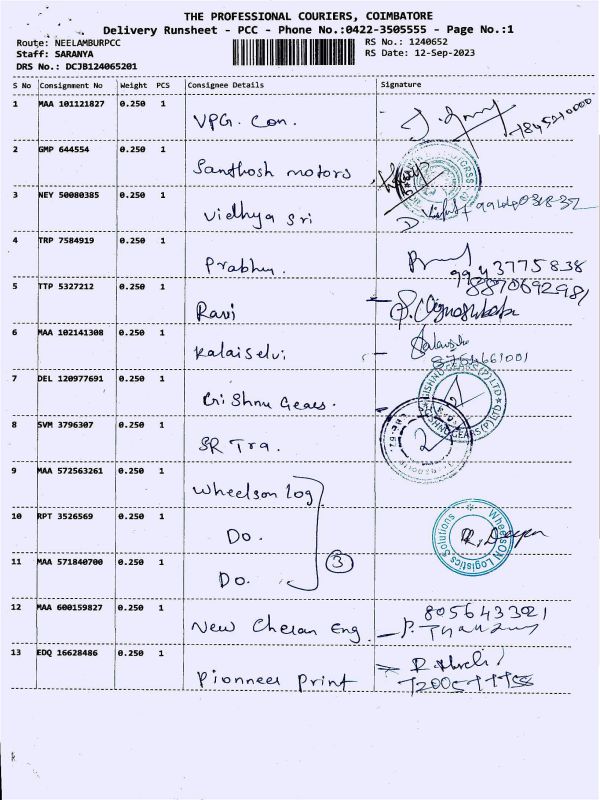 THE PROFESSIONAL COURIERS, COIMBATORE
Delivery Runsheet - PCC - Phone No.:0422-3505555 - Page No.:1
Route: NEELAMBURPCC RS No.: 1240652
Staff: SARANYA RS Date: 12-Sep-2023
DRS No.: DCJB124065201
S No Consignment No Weight PCS Consignee Details Signature
1 MAA 101121827 0.250 1
VPG. Con.
2 GMP 644554 0.250 1
Santhosh motors
3 NEY 50080385 0.250 1
Vidhya Sri
4 TRP 7584919 0.250 1
Prabhu.
9943775838
5 TTP 5327212 0.250 1
8870692981
Ravi
6 MAA 102141308 0.250 1
Kalaiselvi
8764661001
7 DEL 120977691 0.250 1
Crishnu Gears.
8 SVM 3796307 0.250 1
SR Tra.
2
9 MAA 572563261 0.250 1
Wheelson Log
10 RPT 3526569 0.250 1
Do.
WheelsON Logistics Solutions
11 MAA 571840700 0.250 1
3
Do.
12 MAA 600159827 0.250 1
8056433021
New Cheran Eng
13 EDQ 16628486 0.250 1
Pionneer Print